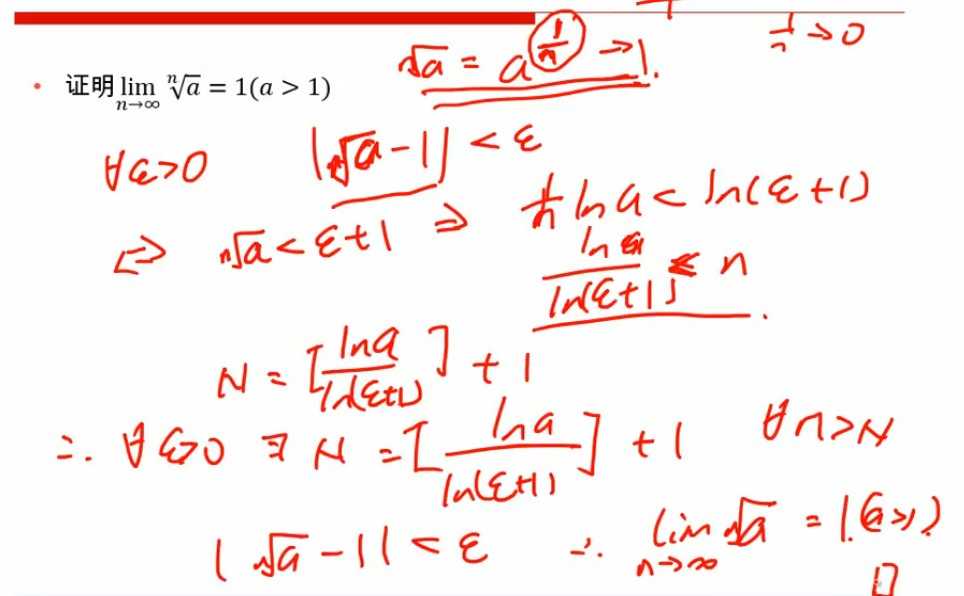 1/n → 0
ⁿ√a = a^(1/n) → 1.
• 证明 lim_{n→∞} ⁿ√a = 1(a > 1)
∀ε>0 |ⁿ√a - 1| < ε
⇔ ⁿ√a < ε+1 ⇒ 1/n ln a < ln(ε+1)
ln a / ln(ε+1) < n.
N = [ln a / ln(ε+1)] + 1
∴ ∀ε>0 ∃ N = [ln a / ln(ε+1)] + 1 ∀n>N
|ⁿ√a - 1| < ε ∴ lim_{n→∞} ⁿ√a = 1.(a>1)
□